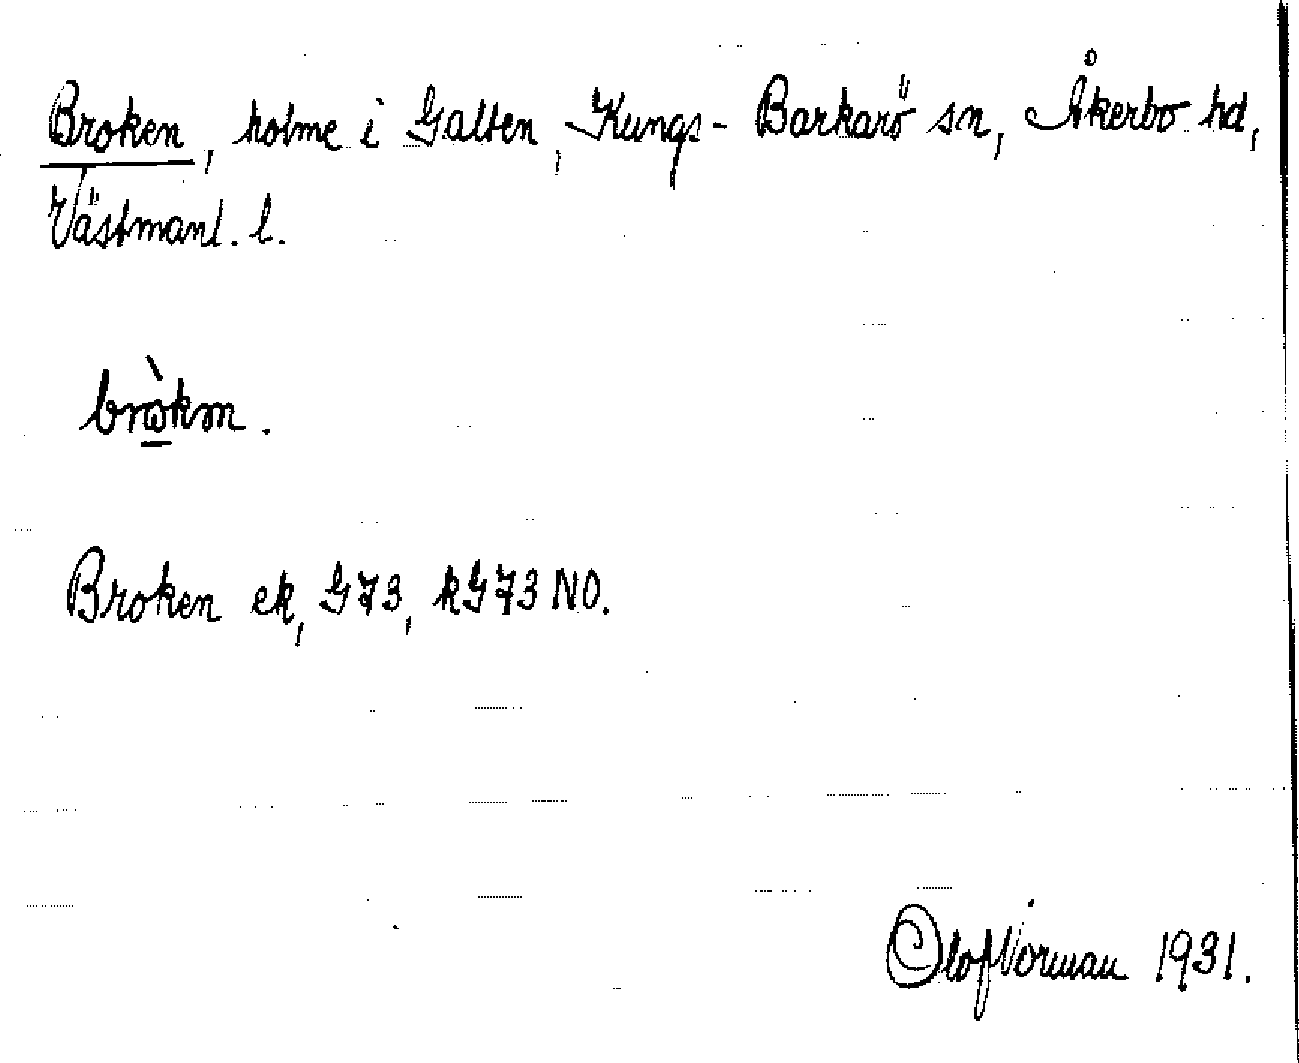 Broken, holme i Galten, Kungs-Barkarö sn, Åkerbo hd,
Västmanl. l.
bròkm.
Broken ek, G73, kG73 NO.
Olof Norman 1931.